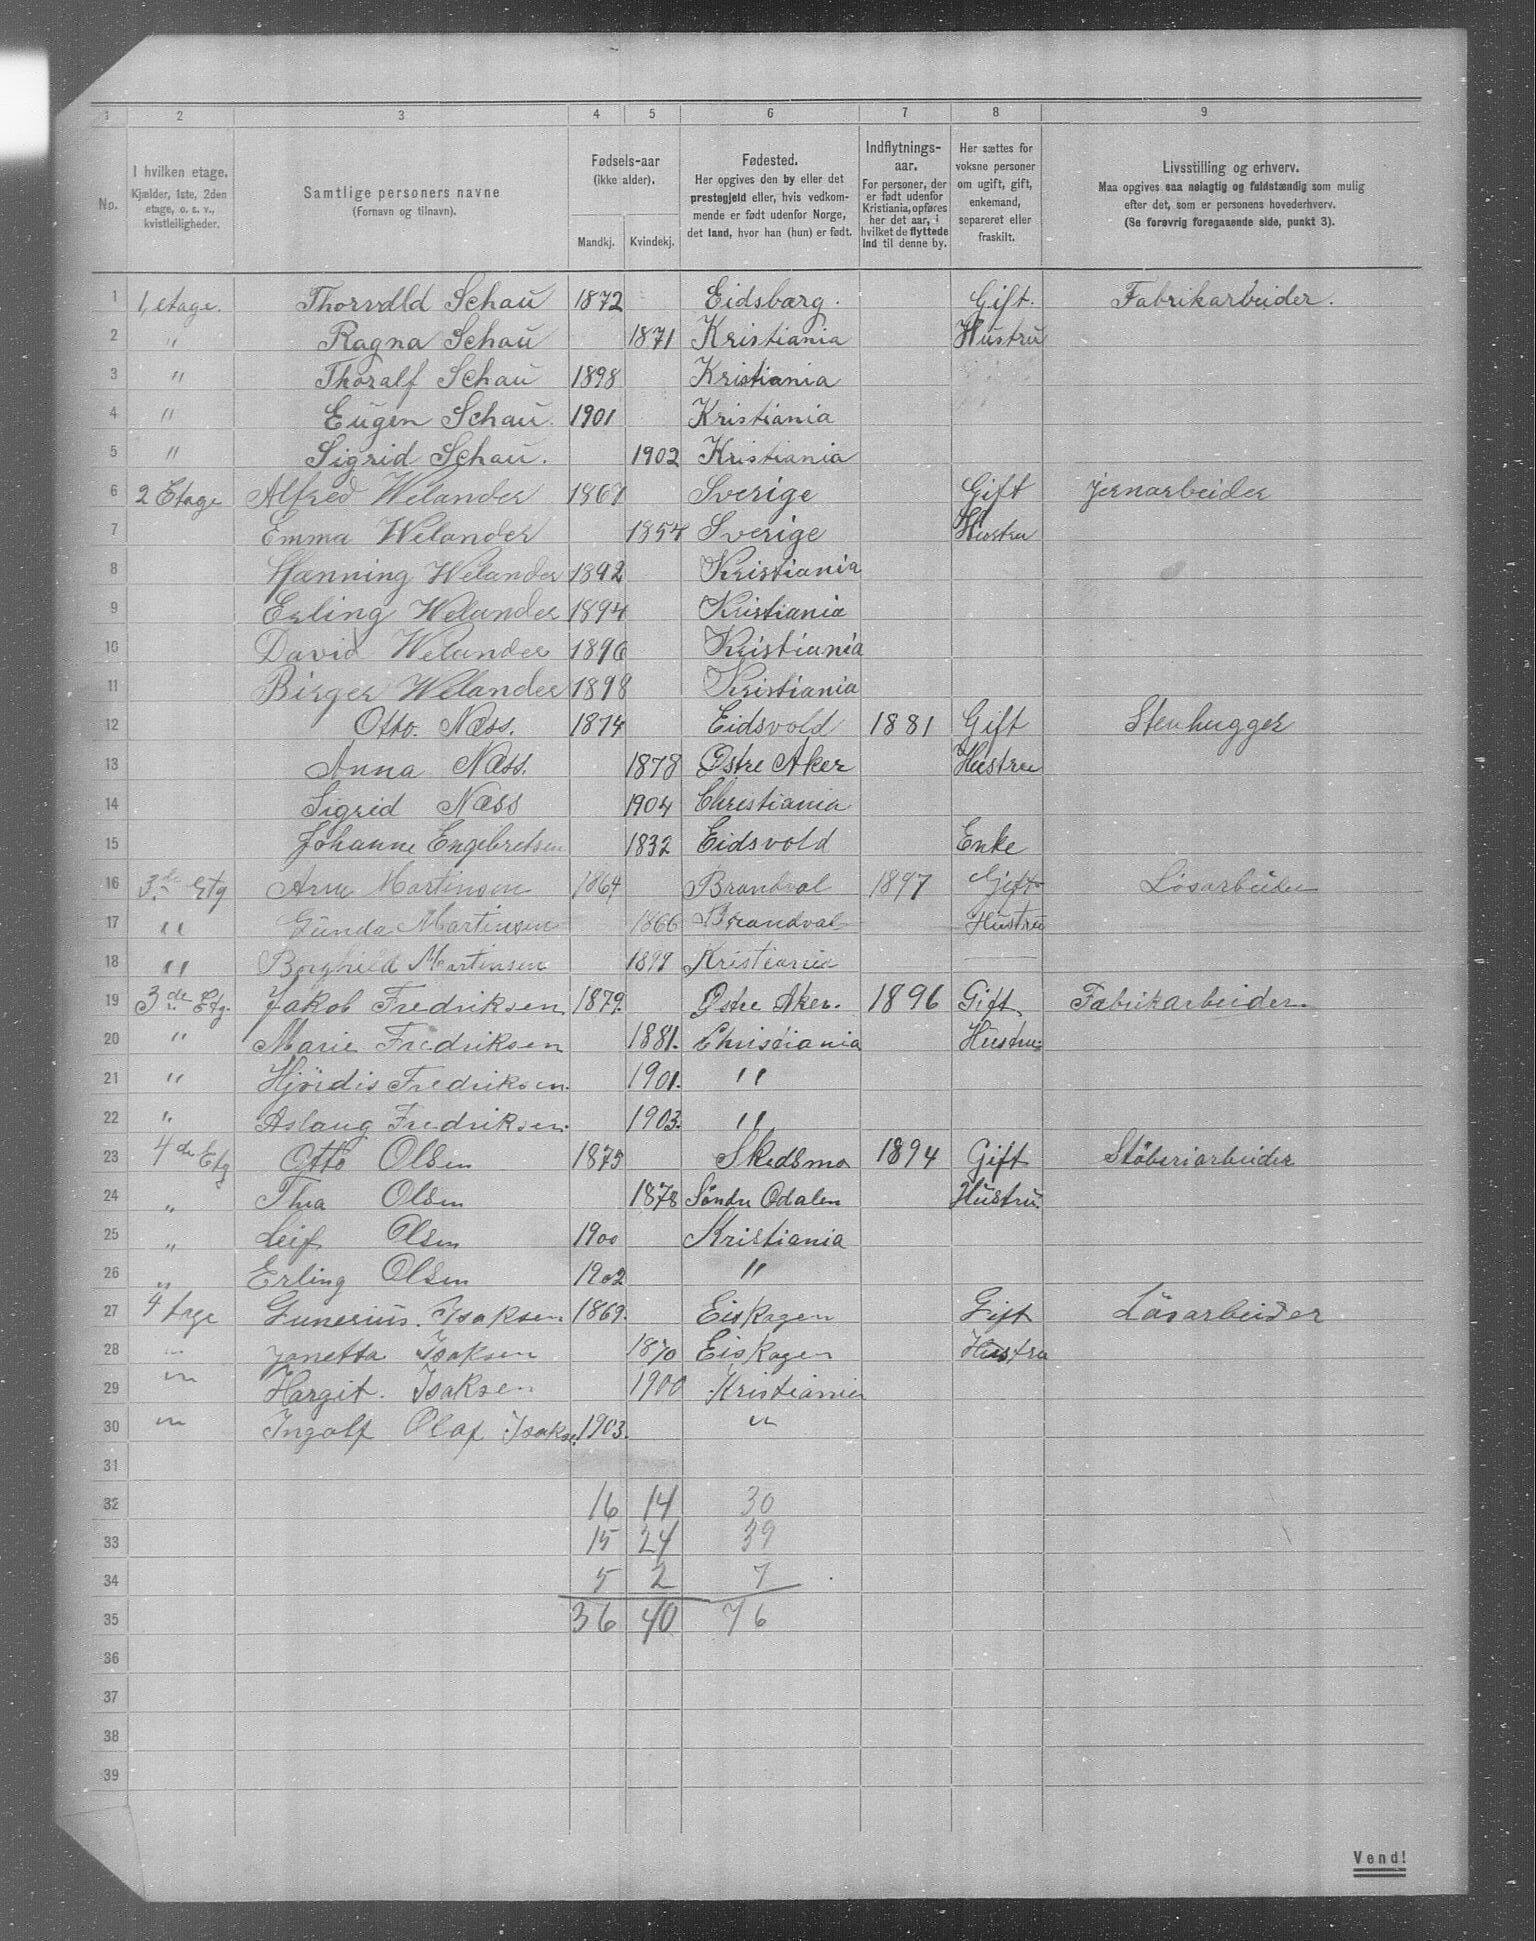 1 2 3 4 5 6 7 8 9
No.
I hvilken etage.
Kjælder, 1ste, 2den
etage, o. s. v.,
kvistleiligheder.
Samtlige personers navne
(Fornavn og tilnavn).
Fødsels-aar
(ikke alder).
Mandkj. Kvindekj.
Fødested.
Her opgives den by eller det
prestegjeld eller, hvis vedkom-
mende er født udenfor Norge,
det land, hvor han (hun) er født.
Indflytnings-
aar.
For personer, der
er født udenfor
Kristiania, opføres
her det aar, i
hvilket de flyttede
ind til denne by.
Her sættes for
voksne personer
om ugift, gift,
enkemand,
separeret eller
fraskilt.
Livsstilling og erhverv.
Maa opgives saa nøiagtig og fuldstændig som mulig
efter det, som er personens hovederhverv.
(Se forøvrig foregaaende side, punkt 3).
1 1, etage. Thorvald Schau 1872 Eidsbarg. Gift. Fabrikarbeider.
2 " Ragna Schau 1871 Kristiania Hustru
3 " Thoralf Schau 1898 Kristiania
4 " Eugen Schau. 1901 Kristiania
5 " Sigrid Schau. 1902 Kristiania
6 2 Etage Alfred Welander 1867 Sverige Gift jernarbeider
7 Emma Welander 1854 Sverige Hustru
8 Hænning Welander 1892 Kristiania
9 Erling Welander 1894 Kristiania
10 David Welander 1896 Kristiania
11 Birger Welander 1898 Kristiania
12 Otto. Næss. 1874 Eidsvold 1881 Gift Stenhugger
13 Anna Næss. 1878 Østre Aker Hustru
14 Sigrid Næss 1904 Christiania
15 Johanne Engebretsen 1832 Eidsvold Enke
16 3de Etg Arne Martinsen 1864 Brandval 1897 Gift Løsarbeider
17 " Gunda Martinsen 1866 Brandval Hustru
18 " Borghild Martinsen 1899 Kristiania
19 3de Etg. Jakob Fredriksen 1879. Østre Aker. 1896 Gift Fabrikarbeider.
20 " Marie Fredriksen 1881. Christiania Hustru.
21 " Hjördis Fredriksen. 1901. "
22 " Aslaug Fredriksen. 1903. "
23 4de Etg Otto Olsen 1875 Skedsmo 1894 Gift Stöberiarbeider
24 " Thea Olsen 1878 Söndre Odalen Hustru.
25 " Leif Olsen 1900 Kristiania
26 " Erling Olsen 1902 "
27 4 tage Gunerius. Isaksen 1869. Eiskogen Gift Lösarbeider
28 " Janetta Isaksen 1870 Eiskogen Hustru
29 " Hargit. Isaksen 1900 Kristiania
30 " Ingolf Olaf Isaksen 1903. "
31
32 16 14 30
33 15 24 39
34 5 2 7
35 36 40 76
36
37
38
39
Vend!